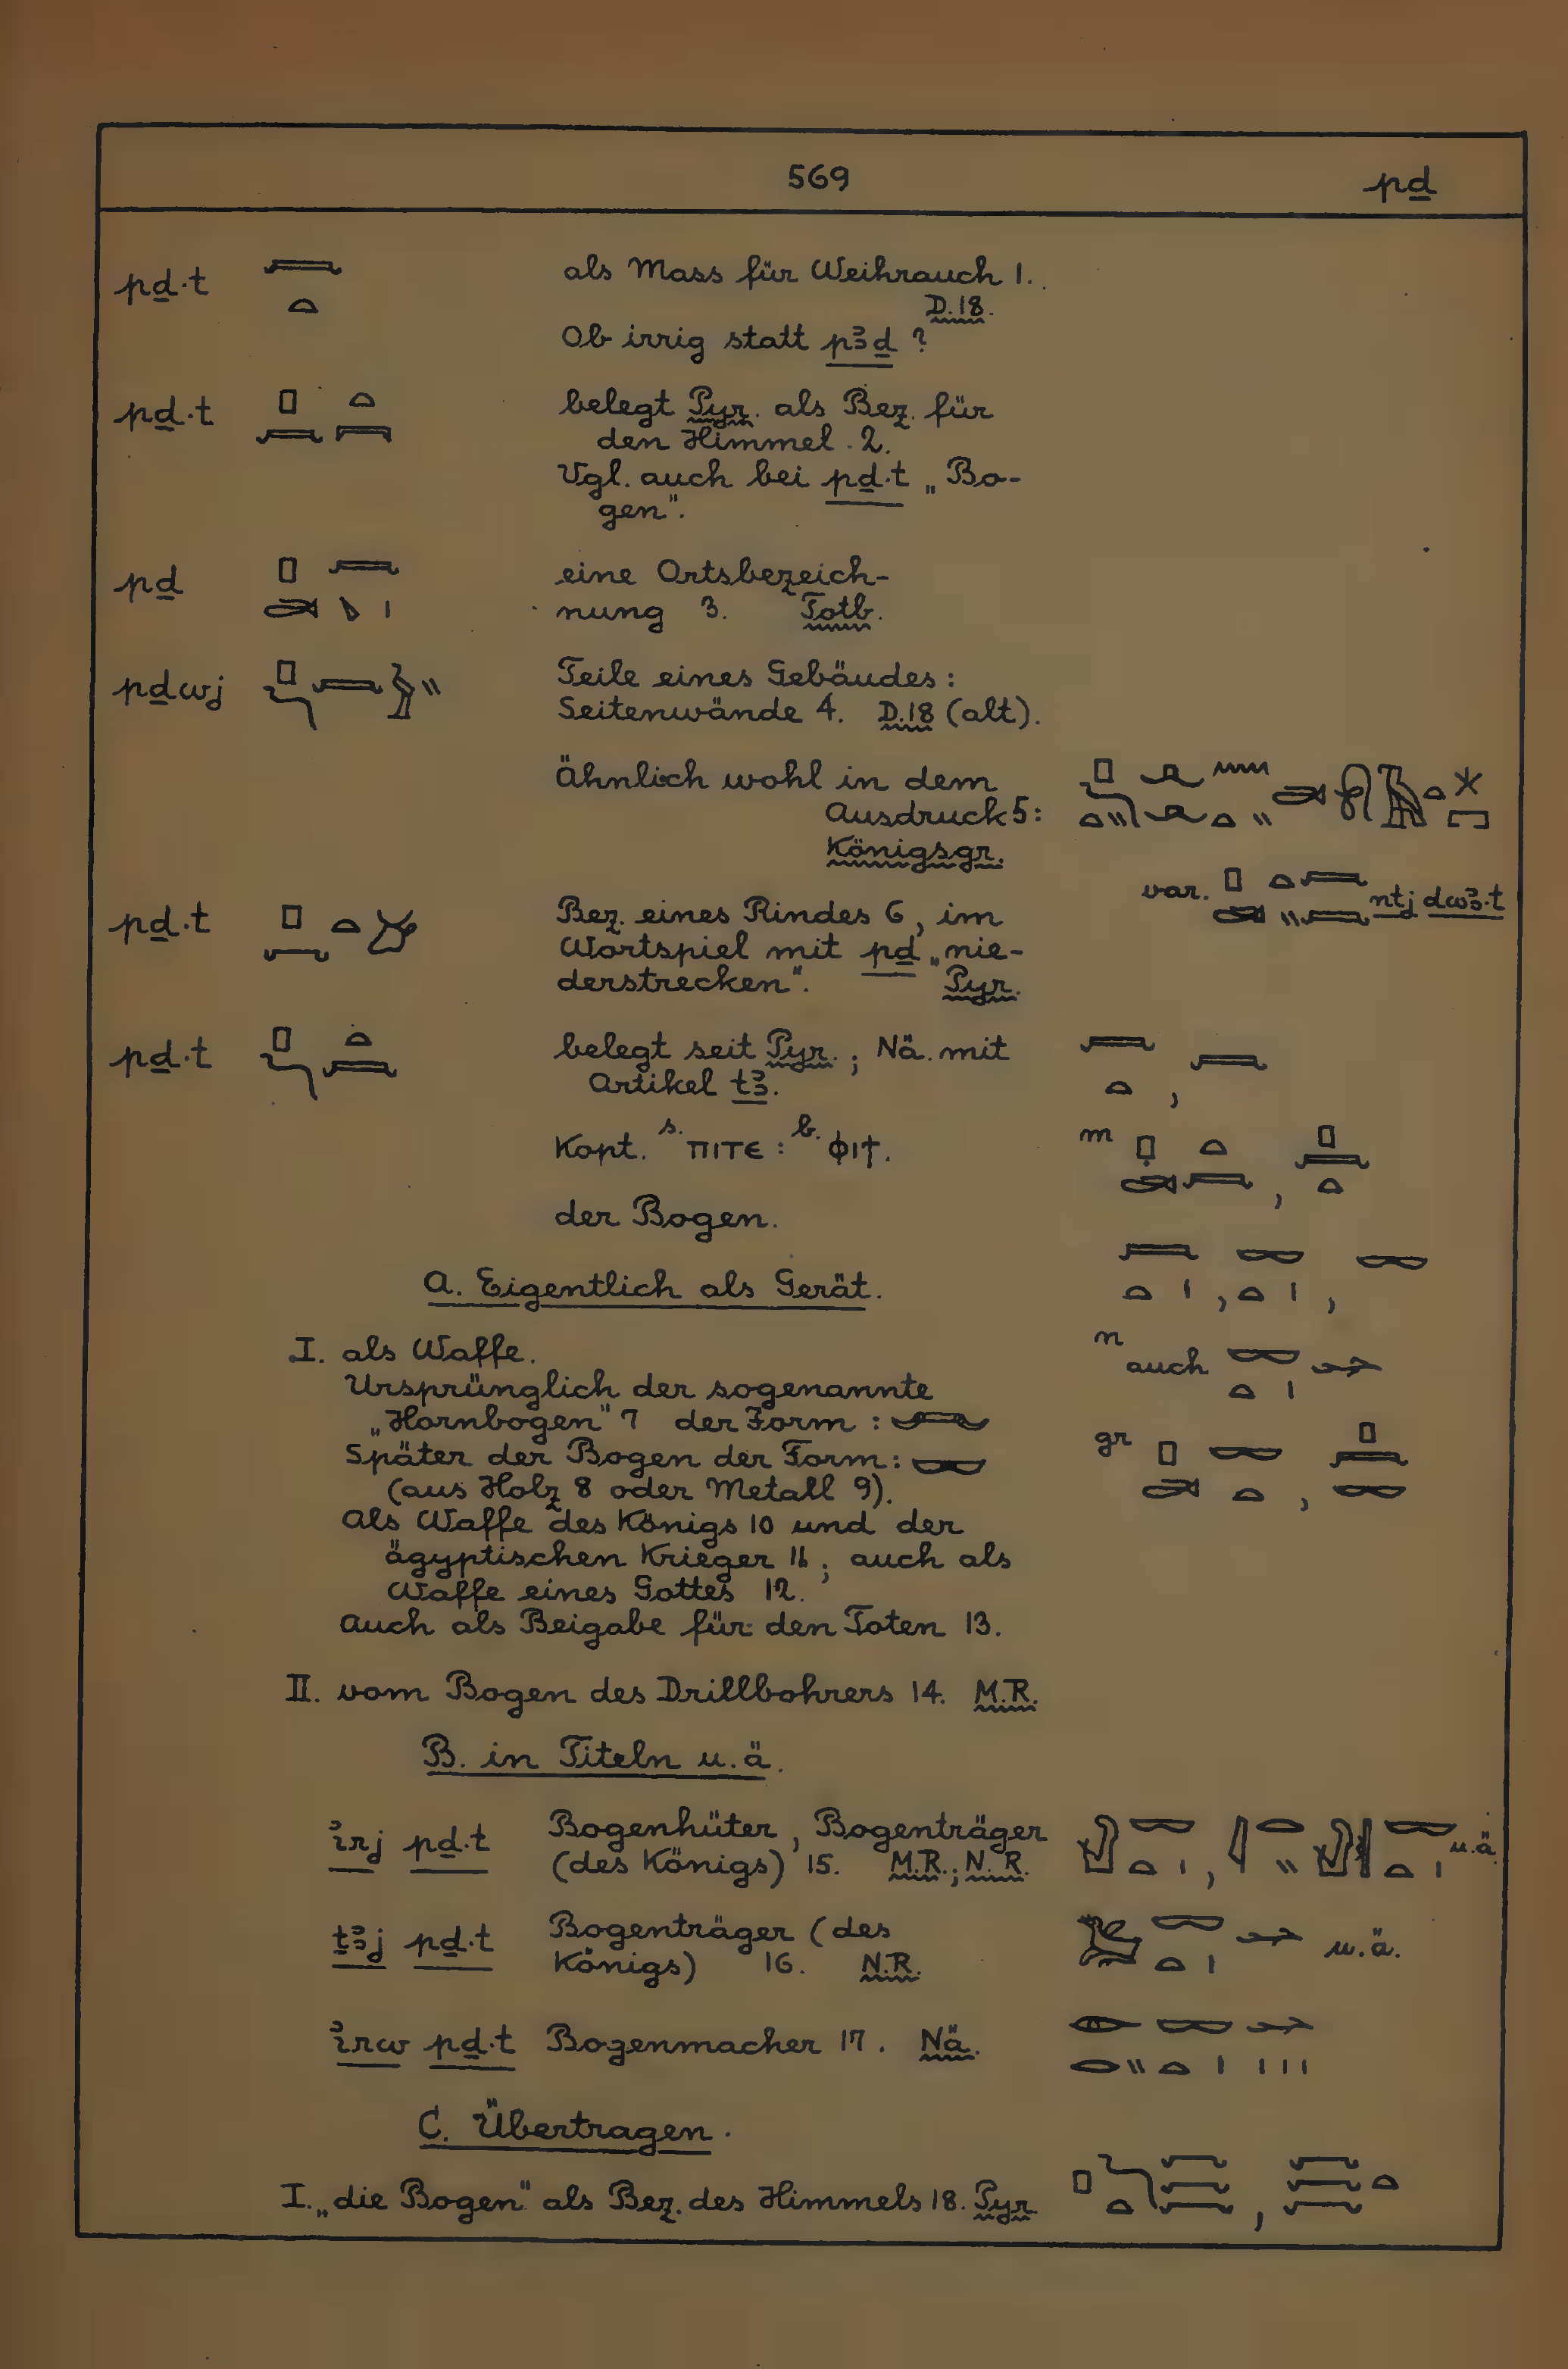 569 pḏ
pḏ·t als Mass für Weihrauch 1.
D.18.
Ob irrig statt pꜣḏ ?
pḏ·t belegt Pyr. als Bez. für
den Himmel 2.
Vgl. auch bei pḏ·t „Bo-
gen".
pḏ eine Ortsbezeich-
nung 3. Totb.
pḏwj Teile eines Gebäudes:
Seitenwände 4. D.18 (alt).
Ähnlich wohl in dem
Ausdruck 5:
Königsgr.
var. ntj dwꜣ·t
pḏ·t Bez. eines Rindes 6, im
Wortspiel mit pḏ „nie-
derstrecken". Pyr.
pḏ·t belegt seit Pyr.; Nä. mit
Artikel tꜣ.
Kopt. s. ⲡⲓⲧⲉ : b. ⲫⲓϯ.
m
der Bogen.
A. Eigentlich als Gerät.
I. als Waffe.
n auch
Ursprünglich der sogenannte
„Hornbogen" 7 der Form :
gr
Später der Bogen der Form :
(aus Holz 8 oder Metall 9).
Als Waffe des Königs 10 und der
ägyptischen Krieger 11; auch als
Waffe eines Gottes 12.
Auch als Beigabe für den Toten 13.
II. vom Bogen des Drillbohrers 14. M.R.
B. in Titeln u.ä.
ꞽrj pḏ·t Bogenhüter, Bogenträger
(des Königs) 15. M.R.; N.R. u.ä.
ṯꜣj pḏ·t Bogenträger (des
Königs) 16. N.R. u.ä.
ꞽrw pḏ·t Bogenmacher 17. Nä.
C. Übertragen.
I. „die Bogen" als Bez. des Himmels 18. Pyr.